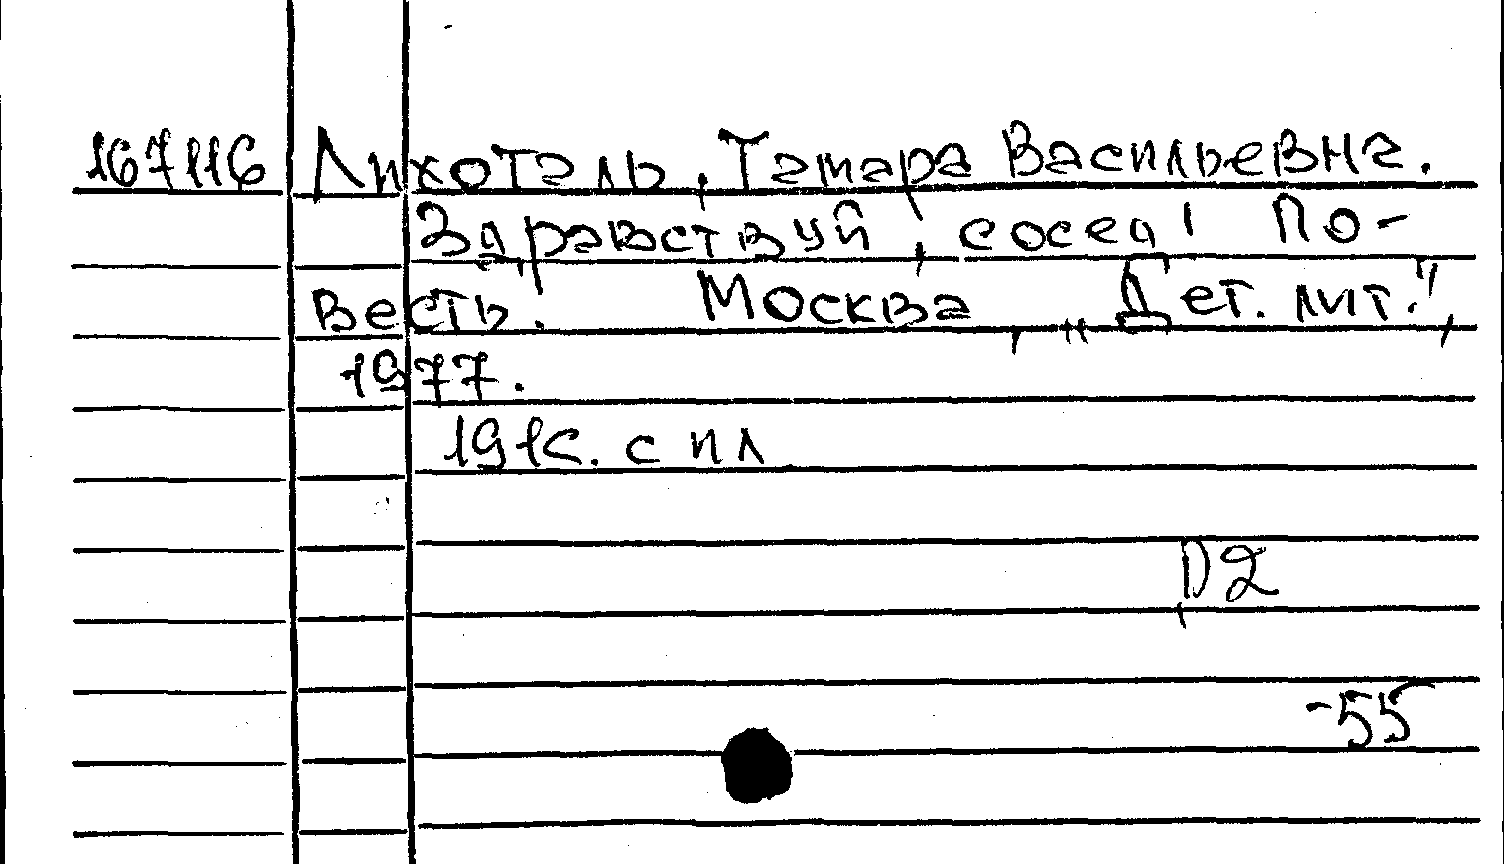 167116 Лихоталь, Тамара Васильевна.
Здравствуй, сосед! По-
весть. Москва, „Дет. лит.",
1977.
191с. с ил
Р2
-55